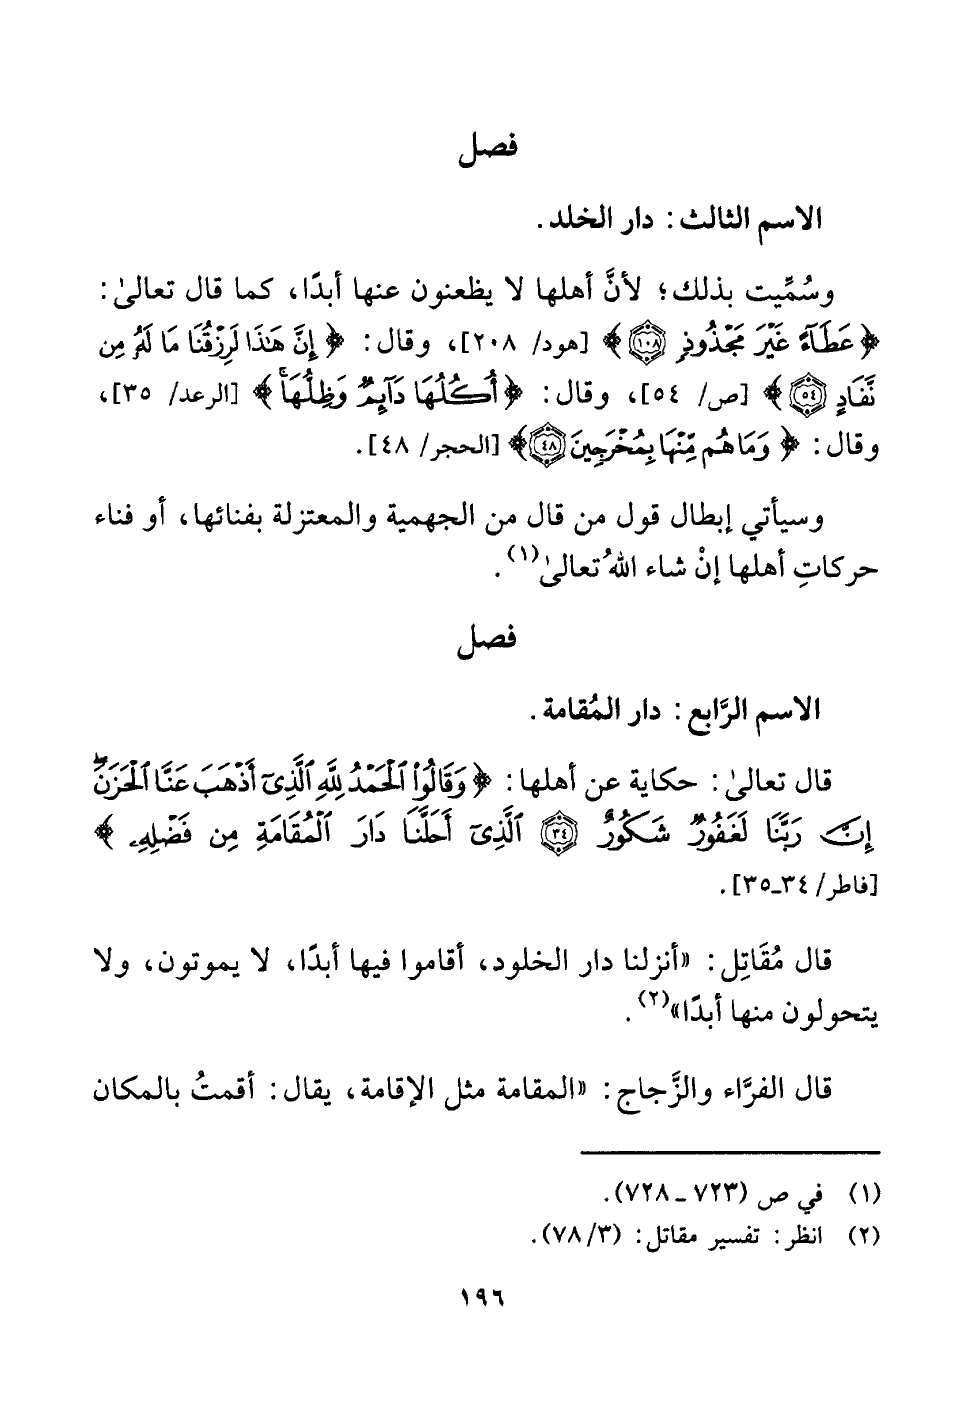 فصل
الاسم الثالث: دار الخلد.
وسُمِّيت بذلك؛ لأنَّ أهلها لا يظعنون عنها أبدًا، كما قال تعالىٰ:
﴿عَطَآءً غَيْرَ مَجْذُوذٍ ١٠٨﴾ [هود/ ٢٠٨]، وقال: ﴿إِنَّ هَٰذَا لَرِزْقُنَا مَا لَهُۥ مِن
نَّفَادٍ ٥٤﴾ [ص/ ٥٤]، وقال: ﴿أُكُلُهَا دَآئِمٌ وَظِلُّهَا﴾ [الرعد/ ٣٥]،
وقال: ﴿وَمَا هُم مِّنْهَا بِمُخْرَجِينَ ٤٨﴾ [الحجر/ ٤٨].
وسيأتي إبطال قول من قال من الجهمية والمعتزلة بفنائها، أو فناء
حركاتِ أهلها إنْ شاء اللهُ تعالىٰ(١).
فصل
الاسم الرَّابع: دار المُقامة.
قال تعالىٰ: حكاية عن أهلها: ﴿وَقَالُوا۟ ٱلْحَمْدُ لِلَّهِ ٱلَّذِىٓ أَذْهَبَ عَنَّا ٱلْحَزَنَ ۖ
إِنَّ رَبَّنَا لَغَفُورٌ شَكُورٌ ٣٤ ٱلَّذِىٓ أَحَلَّنَا دَارَ ٱلْمُقَامَةِ مِن فَضْلِهِۦ﴾
[فاطر/ ٣٤ـ٣٥].
قال مُقَاتِل: «أنزلنا دار الخلود، أقاموا فيها أبدًا، لا يموتون، ولا
يتحولون منها أبدًا»(٢).
قال الفرَّاء والزَّجاج: «المقامة مثل الإقامة، يقال: أقمتُ بالمكان
(١) في ص (٧٢٣ - ٧٢٨).
(٢) انظر: تفسير مقاتل: (٣/ ٧٨).
١٩٦